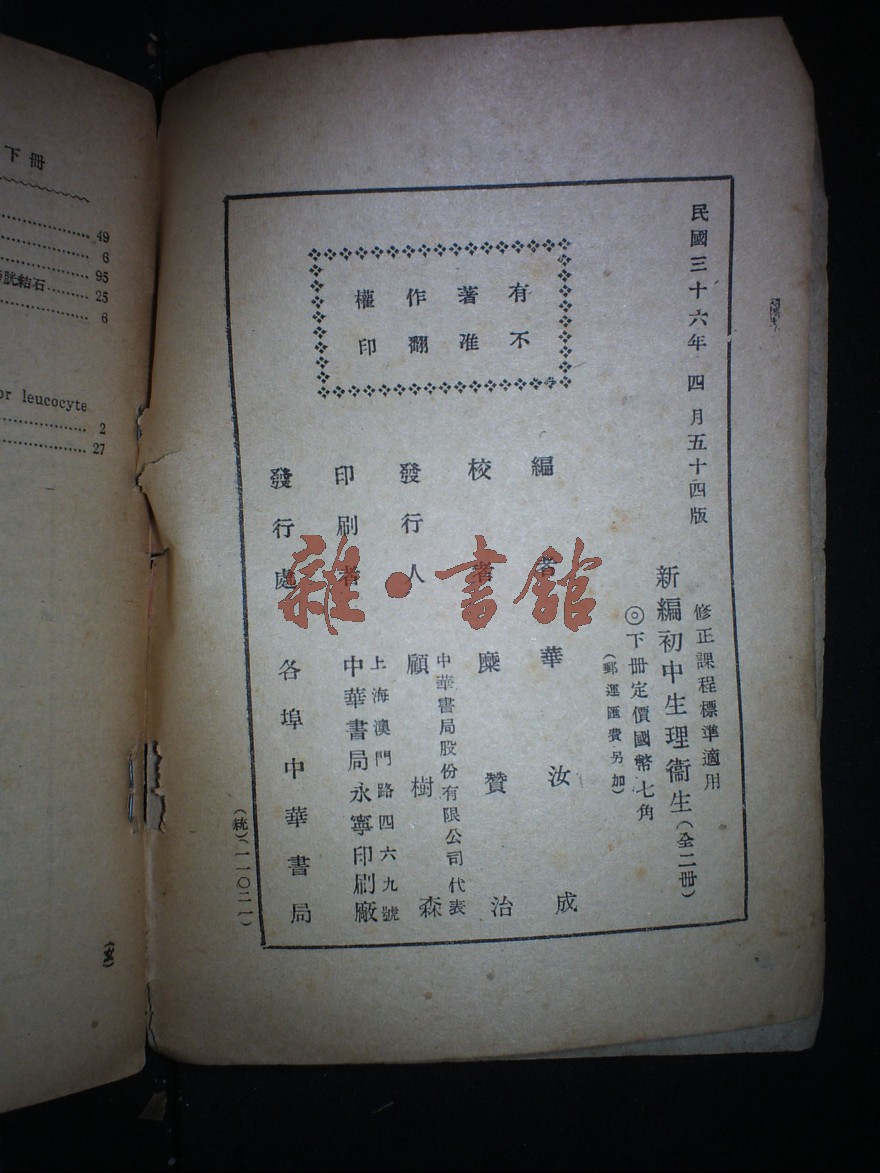 下冊
49
6
95
胱結石 25
6
or leucocyte
2
27
民國三十六年四月五十四版
修正課程標準適用
新編初中生理衞生(全二冊)
◎下冊定價國幣七角
(郵運匯費另加)
有著作權
不准翻印
編者 華汝成
校者 糜贊治
中華書局股份有限公司代表
發行人 顧樹森
上海澳門路四六九號
印刷者 中華書局永寧印刷廠
發行處 各埠中華書局
(統)(一一〇二一)
雜·書館